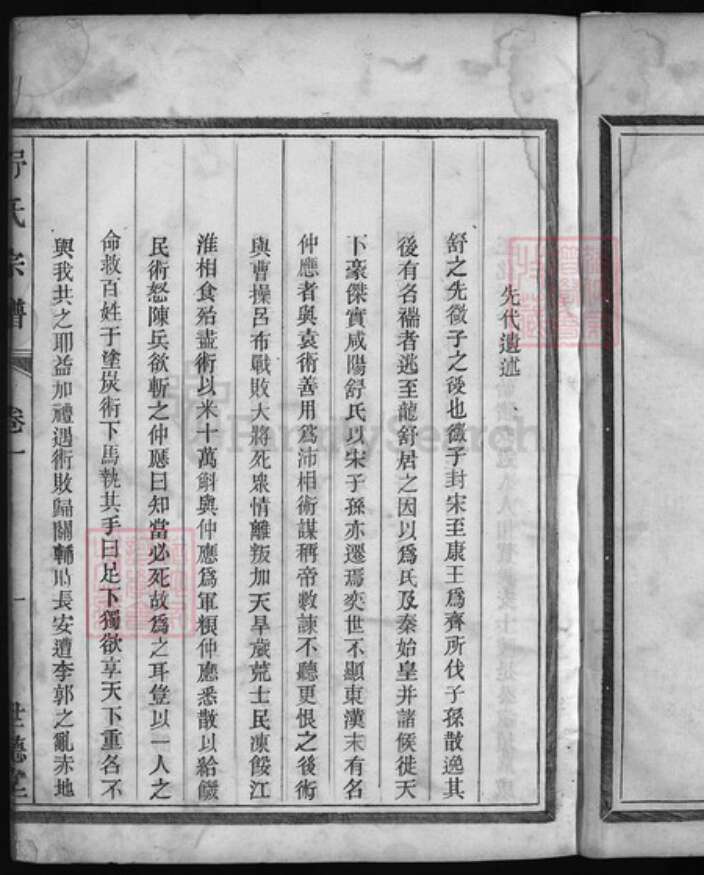 先代遺述
舒之先微子之後也微子封宋至康王爲齊所伐子孫散逸其
後有名襦者逃至龍舒居之因以爲氏及秦始皇并諸候徙天
下豪傑實咸陽舒氏以宋子孫亦遷焉奕世不顯東漢末有名
仲應者與袁術善用爲沛相術謀稱帝數諫不聽更恨之後術
與曹操呂布戰敗大將死衆情離叛加天旱歲荒士民凍餒江
淮相食殆盡術以米十萬斛與仲應爲軍粮仲應悉散以給饑
民術怒陳兵欲斬之仲應曰知當必死故爲之耳豈以一人之
命救百姓于塗炭術下馬執其手曰足下獨欲享天下重名不
與我共之耶益加禮遇術敗歸關輔
長安遭李郭之亂赤地
氏宗譜
卷一
一
世德堂
FamilySearch